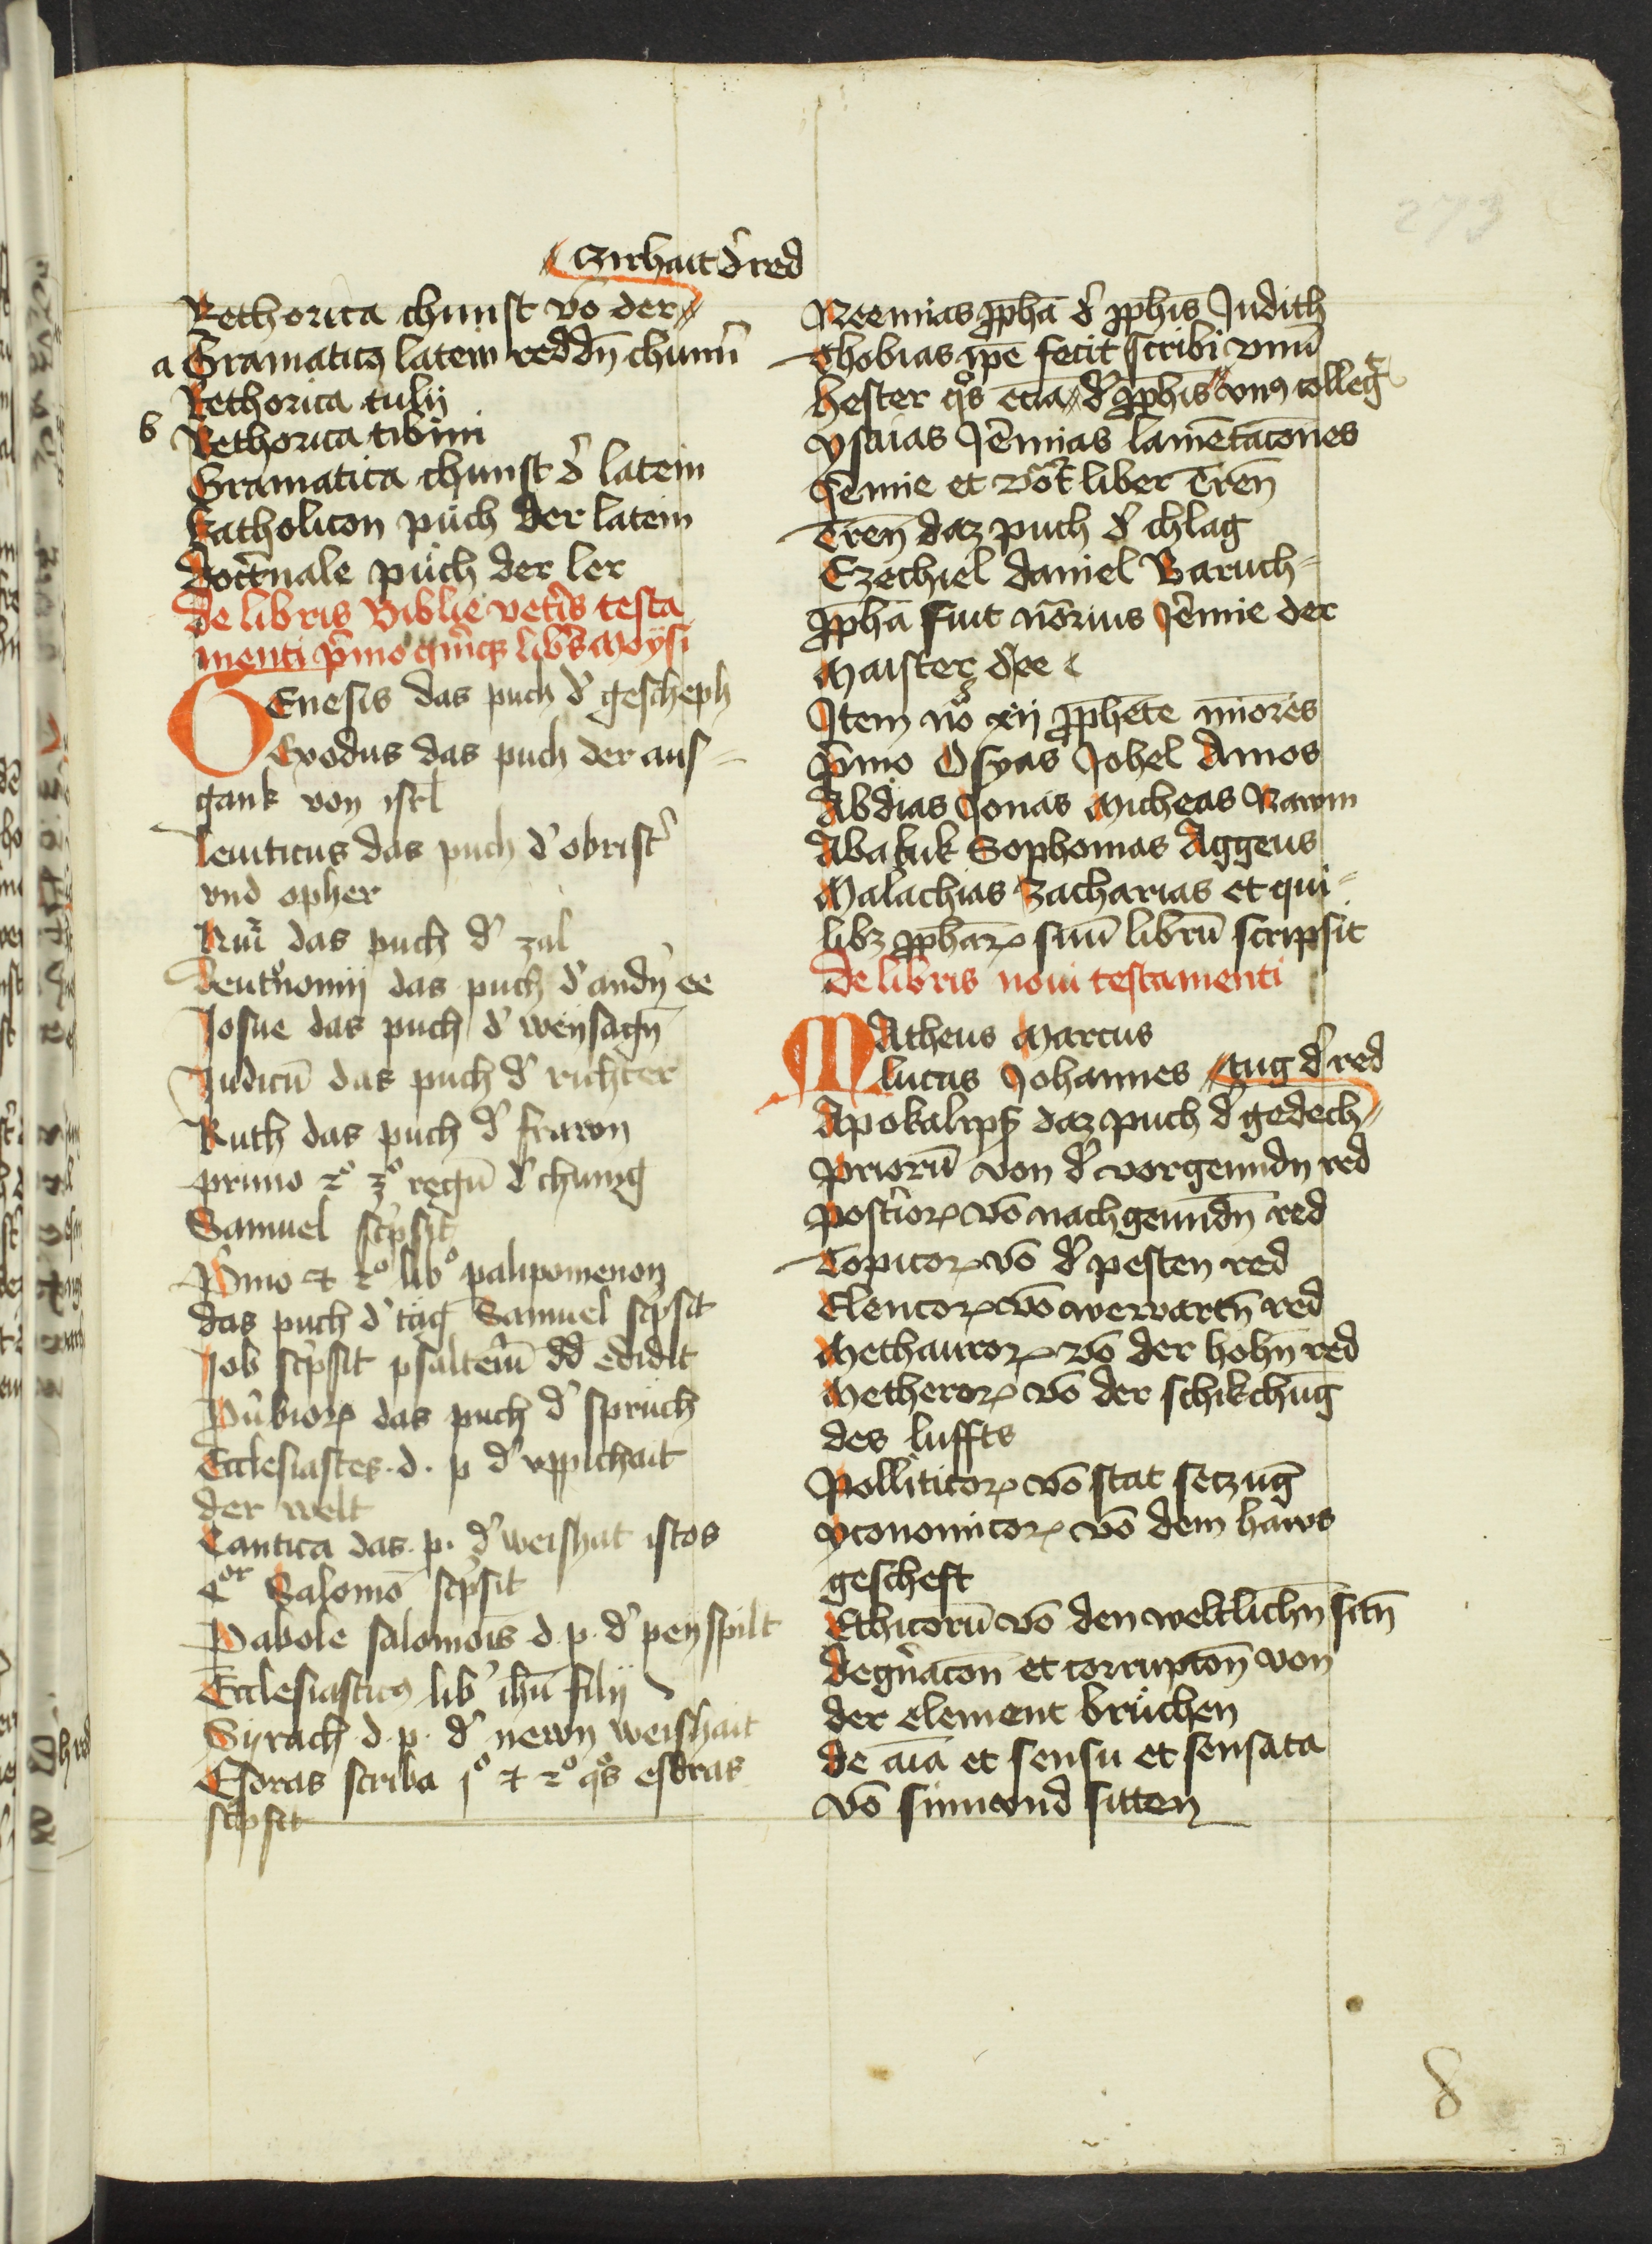 273
czirhait d' red
Rethorica chunst vō der
a Gramaticꝫ latein reddn̄ chunn̄
Rethorica tulij
b Rethorica tibini
Gramatica chunst d' latein
Katholicon puͤch der latein
Doct'nale puͤch der ler
De libris Biblie vet'is testa
menti p'mo qͥnqꝫ lib's Moysi
GEnesis das puch d' gescheph
Exodus das puch der aus-
gank von isrl
Leuiticus das puch d' obrist'
vnd opher
Nu͂i das puch d' zal
Deut'nomij das puch d' andn̄ ee
Josue das puch d' weysagn̄
Judicū das puch d' richter
Ruth das puch d' frawn
primo 2º 3º regū d' chunig
Samuel sc'psit
P'mo ⁊ 2º lib' palipomenon
das puch d' tag Samuel sc'psit
Job sc'psit psalteriū dd edidit
Pu'bioꝝ das puch d' spruch
Ecclesiastes .d. p d' vppichait
der welt
Cantica das .p. d' weishat istos
Salomō sc'psit
Pabole salomōis d. p. d' peyspilt
Ecclesiasticꝰ lib' ihū filij
Syrach d. p. d' newn weishait
Esdras scriba jº ⁊ 2º q̊s esdras
sc'psit
Neemias ꝓphā d' ꝓphis Judith
Thobias ip̄e fecit scribi vnū
Hester q̊s ecia d' ꝓphis vnꝰ colleg
ysaias Je'mias lamētacōnes
Je'mie et vōt liber Tren̄
Tren̄ daz puch d' chlag
Ezechiel daniel Baruch-
ꝓphā fuit nōrius Je'mie der
Maister d' ee
Item nō xij ꝓphēte mīores
p'mo Osyas Johel Amos
Abdias Jonas Micheas Nawm
Abakuk Sophonias Aggeus
Malachias Zacharias et qui-
libꝫ ꝓpharꝝ suū librū scripsit
De libris noui testamenti
MAtheus Marcus
Lucas Johannes
tug d' red
Apokalips daz puch d' gedech
Priorū von d' vorgenndn red
Post'ioꝝ vō nachgenndn̄ red
Topicoꝝ vō d' pesten red
Elencoꝝ vō werwartn̄ red
Methauroꝝ vō der hohn̄ red
Metheroꝝ vō der schikchūg
des luffts
Polliticoꝝ vō stat seczūg
yconomicoꝝ vō dem haws
gescheft
Ethicorū vō den weltlichn̄ sitn̄
Degn̄acōn et corrupcōn von
der element bruͤchen
de aīa et sensu et sensata
vō sinn vnd sitten
8